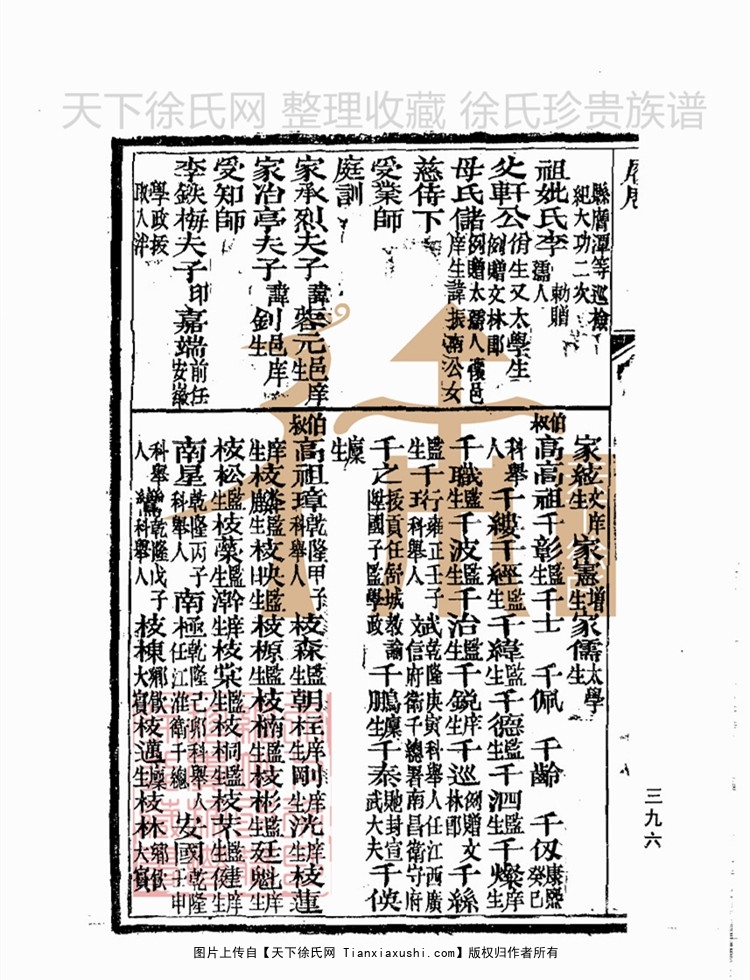 天下徐氏网 整理收藏 徐氏珍贵族谱
縣膚潭等巡檢
紀大功二次
祖妣氏李 孺人 勅贈
父軒公 佾生又太學生 例贈文林郎
母氏儲 例贈太孺人 懷邑庠生諱振南公女
慈侍下
受業師
庭訓
家承烈夫子 諱蓉元 邑庠生
家冶亭夫子 諱釗 邑庠生
受知師
李鉄梅夫子 印嘉端 前任安徽
學政拔取入泮
家紋 文庠生 家憲 增生 家儒 太學生
伯叔高高祖千彰 監生 千士 千佩 千齡 千仭 康熙癸巳
科舉人 千纓 千經 監生 千緯 監生 千德 監生 千泗 監生 千燦 庠生
千職 監生 千波 監生 千治 監生 千銳 庠生 千巡 例贈文林郎 千絲
監生 千行 雍正壬子科舉人 斌 乾隆庚寅科舉人任江西廣信府衛千總署南昌衛守府
千之 拔貢任舒城教諭陞國子監學政 千鵬 廩生 千泰 馳封宣武大夫 千俠
廩生
伯叔高祖璋 乾隆甲子科舉人 枝森 監生 朝柱 庠生 剛 庠生 洸 庠生 枝蓮
庠生 枝 監生 枝映 監生 枝榞 監生 枝楠 監生 枝彬 監生 廷 庠生
枝松 監生 枝榮 監生 澣 庠生 枝棠 監生 枝桐 監生 枝 監生 建 庠生
南星 乾隆丙子科舉人 南極 乾隆己卯科舉人任江淮衛千總 安國 乾隆壬申
科舉人 鸞 乾隆戊子科舉人 枝棟 鄉飲大賓 枝邁 廩生 枝林 鄉飲大賓
三九六
图片上传自【天下徐氏网 Tianxiaxushi.com】版权归作者所有